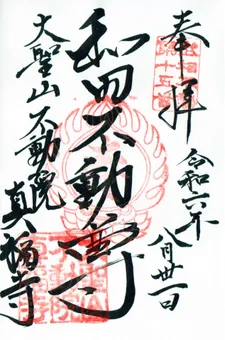 奉拝
令和六年
八月廿一日
和田不動尊
大聖山不動院
真福寺